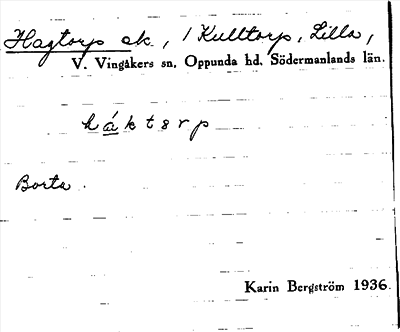 Hagtorp ek, / Kulltorp, Lilla,
V. Vingåkers sn, Oppunda hd, Södermanlands län.
háktorp
Borta.
Karin Bergström 1936.